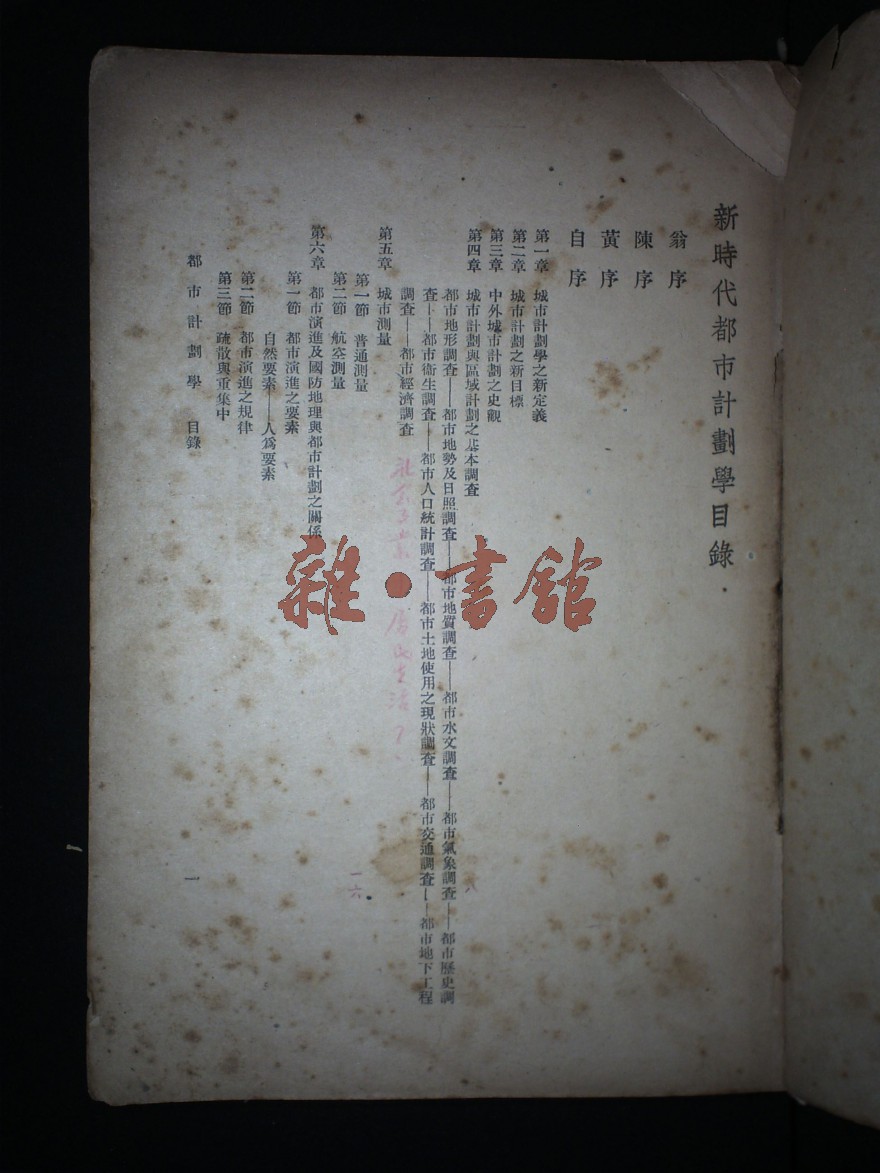 新時代都市計劃學目錄
翁序
陳序
黃序
自序
第一章 城市計劃學之新定義
第二章 城市計劃之新目標
第三章 中外城市計劃之史觀
第四章 城市計劃與區域計劃之基本調查
都市地形調查——都市地勢及日照調查——都市地質調查——都市水文調查——都市氣象調查——都市歷史調
查——都市衛生調查——都市人口統計調查——都市土地使用之現狀調查——都市交通調查——都市地下工程
調查——都市經濟調查
第五章 城市測量
第一節 普通測量
第二節 航空測量
第六章 都市演進及國防地理與都市計劃之關係
第一節 都市演進之要素
自然要素——人爲要素
第二節 都市演進之規律
第三節 疏散與重集中
都市計劃學 目錄
一
八
一六
雜·書館